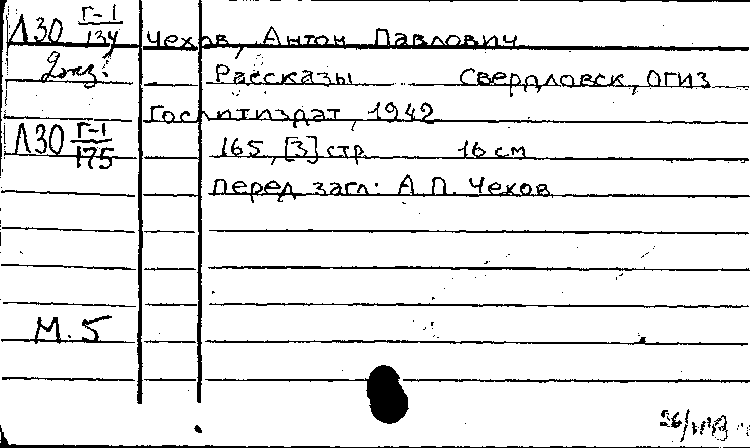 Л30 Г-1/134 Чехов, Антон Павлович
2 экз. Рассказы Свердловск, ОГИЗ
Гослитиздат, 1942
Л30 Г-1/175 165, [3] стр 16 см
перед загл: А.П. Чехов
М. 5